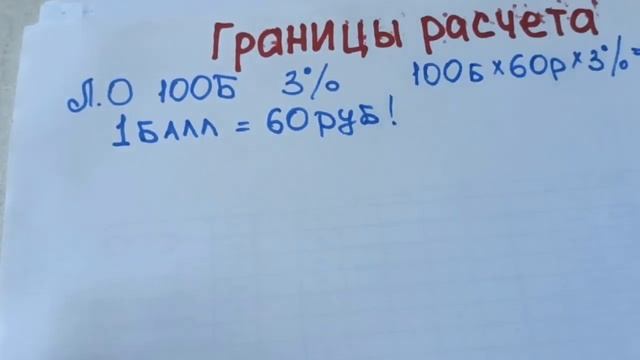 Границы расчета
Л.О 100Б 3% 100Б×60р×3%=
1 БАЛЛ = 60 руб!